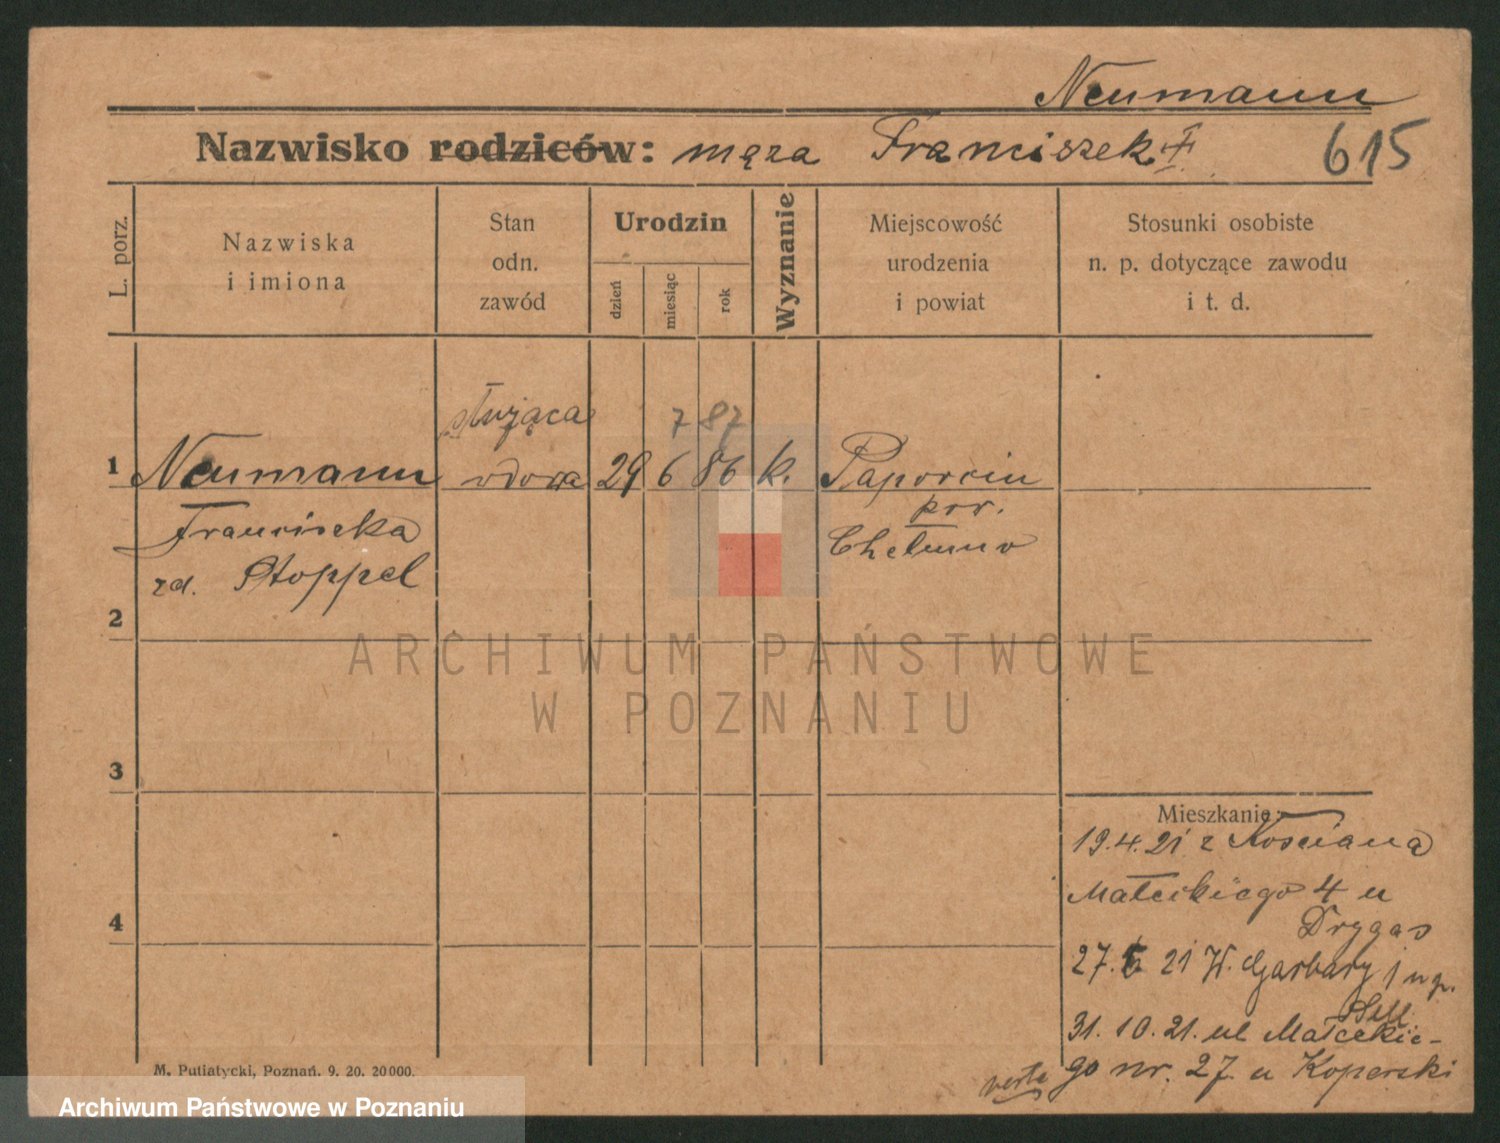 Neumann
Nazwisko rodziców: męża Franciszek † 615
L. porz.
Nazwiska
i imiona
Stan
odn.
zawód
Urodzin
dzień
miesiąc
rok
Wyznanie
Miejscowość
urodzenia
i powiat
Stosunki osobiste
n. p. dotyczące zawodu
i t. d.
służąca 7 87
1 Neumann wdowa 29 6 86 k. Paporcin
Franciszka pow.
zd. Stoppel Chełmno
2
3
4
Mieszkanie:
19.4.21 z Kościana
Małeckiego 4 u
Drygas
27. 21 W. Garbary 1 u p.
31. 10. 21. ul Małeckie-
go nr. 27 u Koperski
verte
M. Putiatycki, Poznań. 9. 20. 20000.
ARCHIWUM PAŃSTWOWE
W POZNANIU
Archiwum Państwowe w Poznaniu